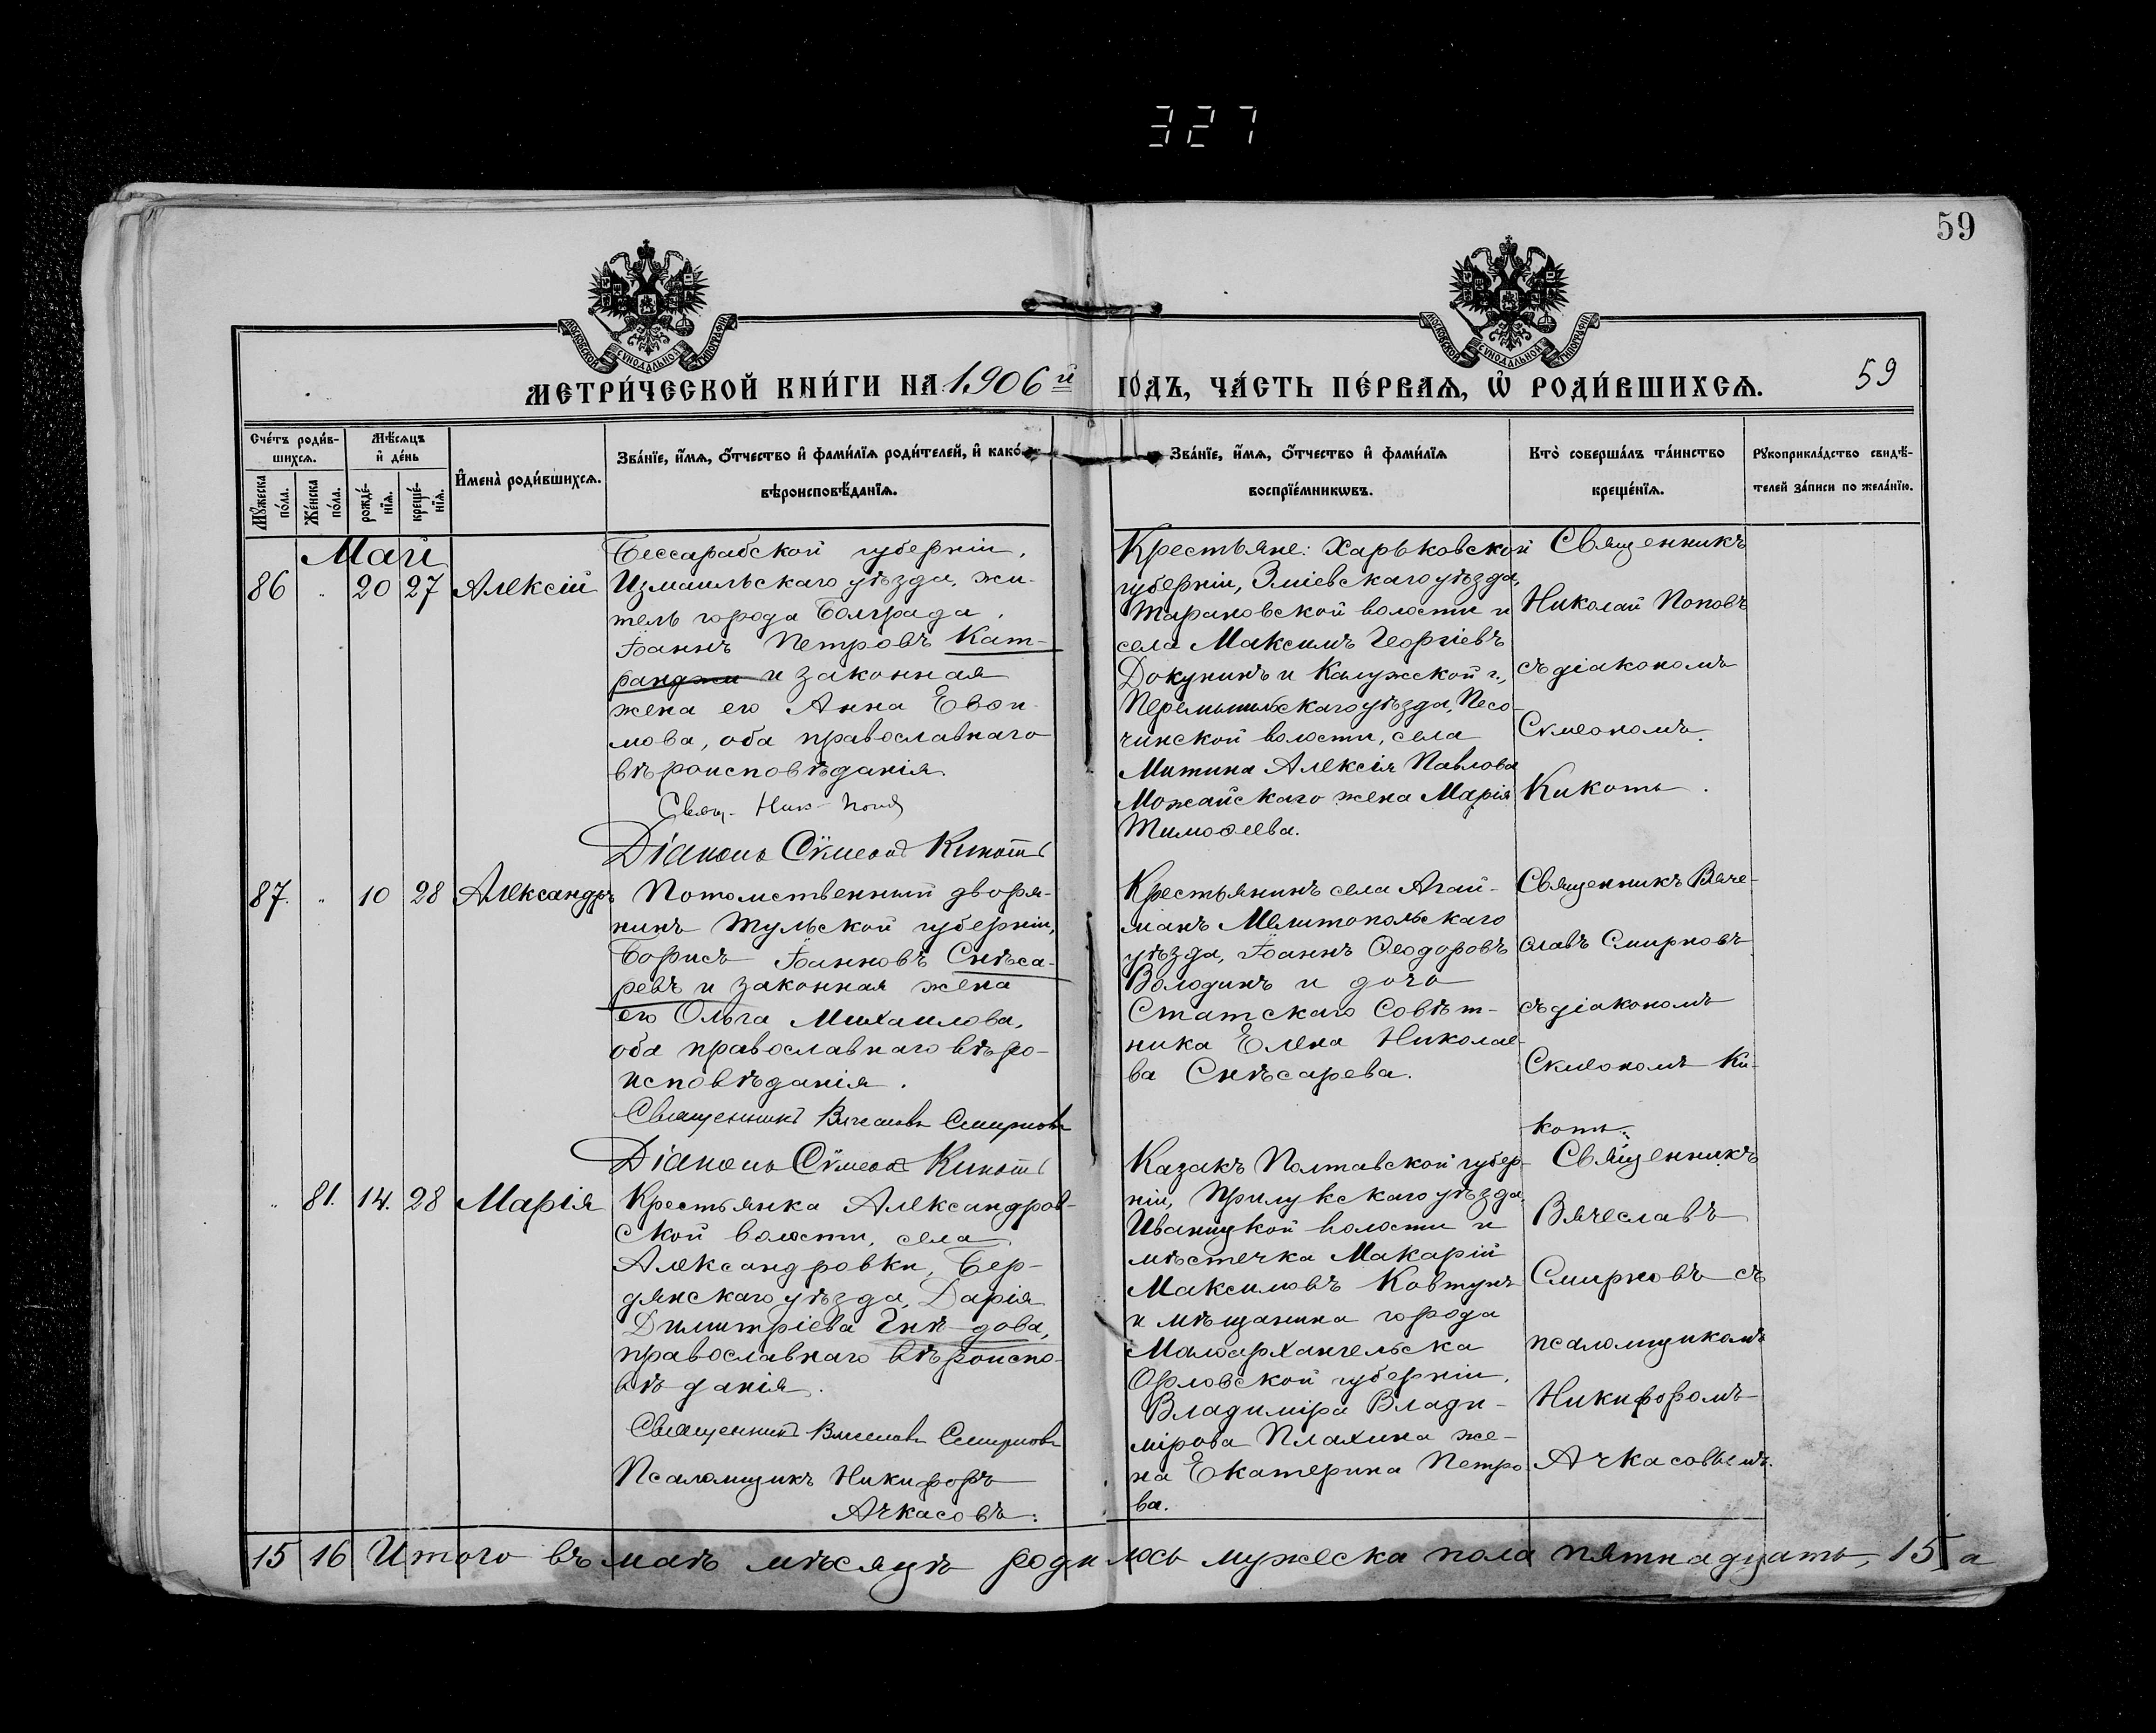 327
59
МОСКОВСКОЙ СѴНОДАЛЬНОЙ ТИПОГРАФІИ
МОСКОВСКОЙ СѴНОДАЛЬНОЙ ТИПОГРАФІИ
МЕТРИ́ЧЕСКОЙ КНИ́ГИ НА 1906й ГО́ДЪ, ЧА́СТЬ ПЕ́РВАѦ, Ѡ҆ РОДИ́ВШИХСѦ.
59
Сче́тъ роди́в-
шихсѧ.
Мꙋ́жеска по́ла.
Же́нска по́ла.
Мѣ́сѧцъ
и҆ де́нь
рожде́-
нїѧ.
креще́-
нїѧ.
И҆мена̀ роди́вшихсѧ.
Зва́нїе, и҆́мѧ, ѻ҆́тчество и҆ фами́лїѧ роди́телей, и҆ како́гѡ
вѣроисповѣ́данїѧ.
Зва́нїе, и҆́мѧ, ѻ҆́тчество и҆ фами́лїѧ
воспрїе́мникѡвъ.
Кто̀ соверша́лъ та́инство
креще́нїѧ.
Рꙋкоприкла́дство свидѣ́-
телей за́писи по жела́нїю.
Май
86 " 20 27 Алексій
Бессарабской губерніи,
Измаильскаго уѣзда, жи-
тель города Болграда,
Іоаннъ Петровъ Кат-
ранджи и законная
жена его Анна Евфи-
мова, оба православнаго
вѣроисповѣданія.
Свящ. Ник. Попов
Діаконъ Сѵмеонъ Кикоть
Крестьяне: Харьковской
губерніи, Зміевскаго уѣзда,
Тарановской волости и
села Максимъ Георгіевъ
Докукинъ и Калужской г.,
Перемышльскаго уѣзда, Песо-
чинской волости, села
Митина Алексія Павлова
Можайскаго жена Марія
Тимоѳеева.
Священникъ
Николай Поповъ
съ діакономъ
Сѵмеономъ
Кикоть.
87. " 10 28 Александръ
Потомственный дворя-
нинъ Тульской губерніи,
Борисъ Іоанновъ Снѣса-
ревъ и законная жена
его Ольга Михаилова,
оба православнаго вѣро-
исповѣданія.
Священникъ Вячеславъ Смирновъ
Діаконъ Сѵмеонъ Кикоть
Крестьянинъ села Агай-
манъ Мелитопольскаго
уѣзда, Іоаннъ Ѳеодоровъ
Володинъ и дочь
Статскаго Совѣт-
ника Елена Николае-
ва Снѣсарева.
Священникъ Вяче-
славъ Смирновъ
съ діакономъ
Сѵмеономъ Ки-
коть.
" 81. 14. 28 Марія
Крестьянка Александров-
ской волости, села
Александровки, Бер-
дянскаго уѣзда, Дарія
Димитріева Гнѣдова,
православнаго вѣроиспо-
вѣданія.
Священникъ Вячеславъ Смирновъ
Псаломщикъ Никифоръ
Ачкасовъ.
Казакъ Полтавской губер-
ніи, Прилукскаго уѣзда,
Иваницкой волости и
мѣстечка Макарій
Максимовъ Ковтунъ
и мѣщанина города
Малоархангельска
Орловской губерніи,
Владиміра Влади-
мірова Плахина же-
на Екатерина Петро-
ва.
Священникъ
Вячеславъ
Смирновъ съ
псаломщикомъ
Никифоромъ
Ачкасовымъ.
15 16 Итого въ маѣ мѣсяцѣ родилось мужеска пола пятнадцать, 15, а